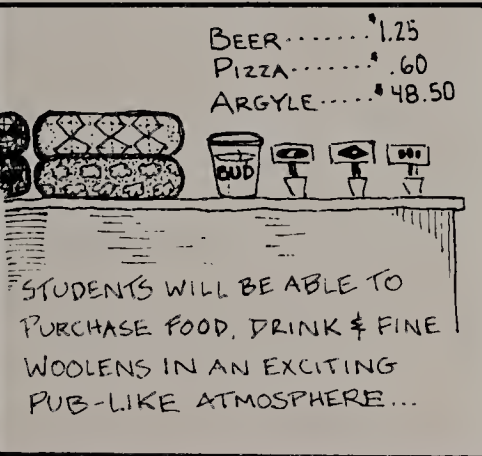 BEER.......$1.25
PIZZA.......$.60
ARGYLE.....$48.50
BUD
STUDENTS WILL BE ABLE TO
PURCHASE FOOD, DRINK & FINE
WOOLENS IN AN EXCITING
PUB-LIKE ATMOSPHERE...